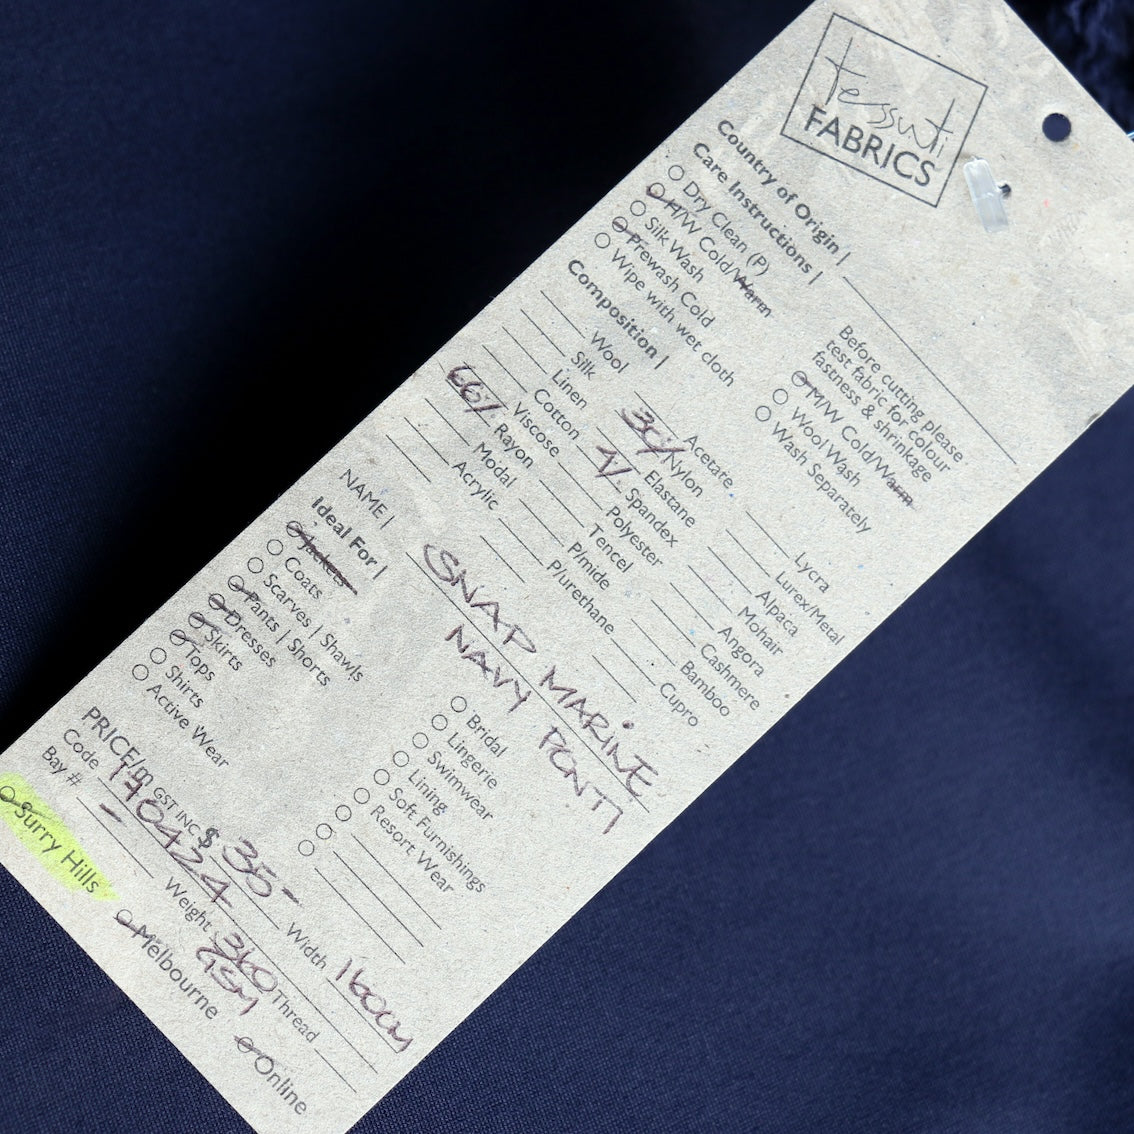 tessuti
FABRICS
Country of Origin |
Care Instructions |
Dry Clean (P)
H/W Cold/Warm
Silk Wash
Prewash Cold
Wipe with wet cloth
Before cutting please
test fabric for colour
fastness & shrinkage
M/W Cold/Warm
Wool Wash
Wash Separately
Composition |
Wool
Silk
Linen
Cotton
66% Viscose
Rayon
Modal
Acrylic
Acetate
30% Nylon
Elastane
Spandex
Polyester
Tencel
P/mide
P/urethane
Lycra
Lurex/Metal
Alpaca
Mohair
Angora
Cashmere
Bamboo
Cupro
NAME |
SNAP MARINE
NAVY PONTI
Ideal For |
Jackets
Coats
Scarves | Shawls
Pants | Shorts
Dresses
Skirts
Tops
Shirts
Active Wear
Bridal
Lingerie
Swimwear
Lining
Soft Furnishings
Resort Wear
PRICE/m GST INC $ 35-
Width 160cm
Code 170424
Weight 360 GSM
Thread
Bay # -
Surry Hills
Melbourne
Online